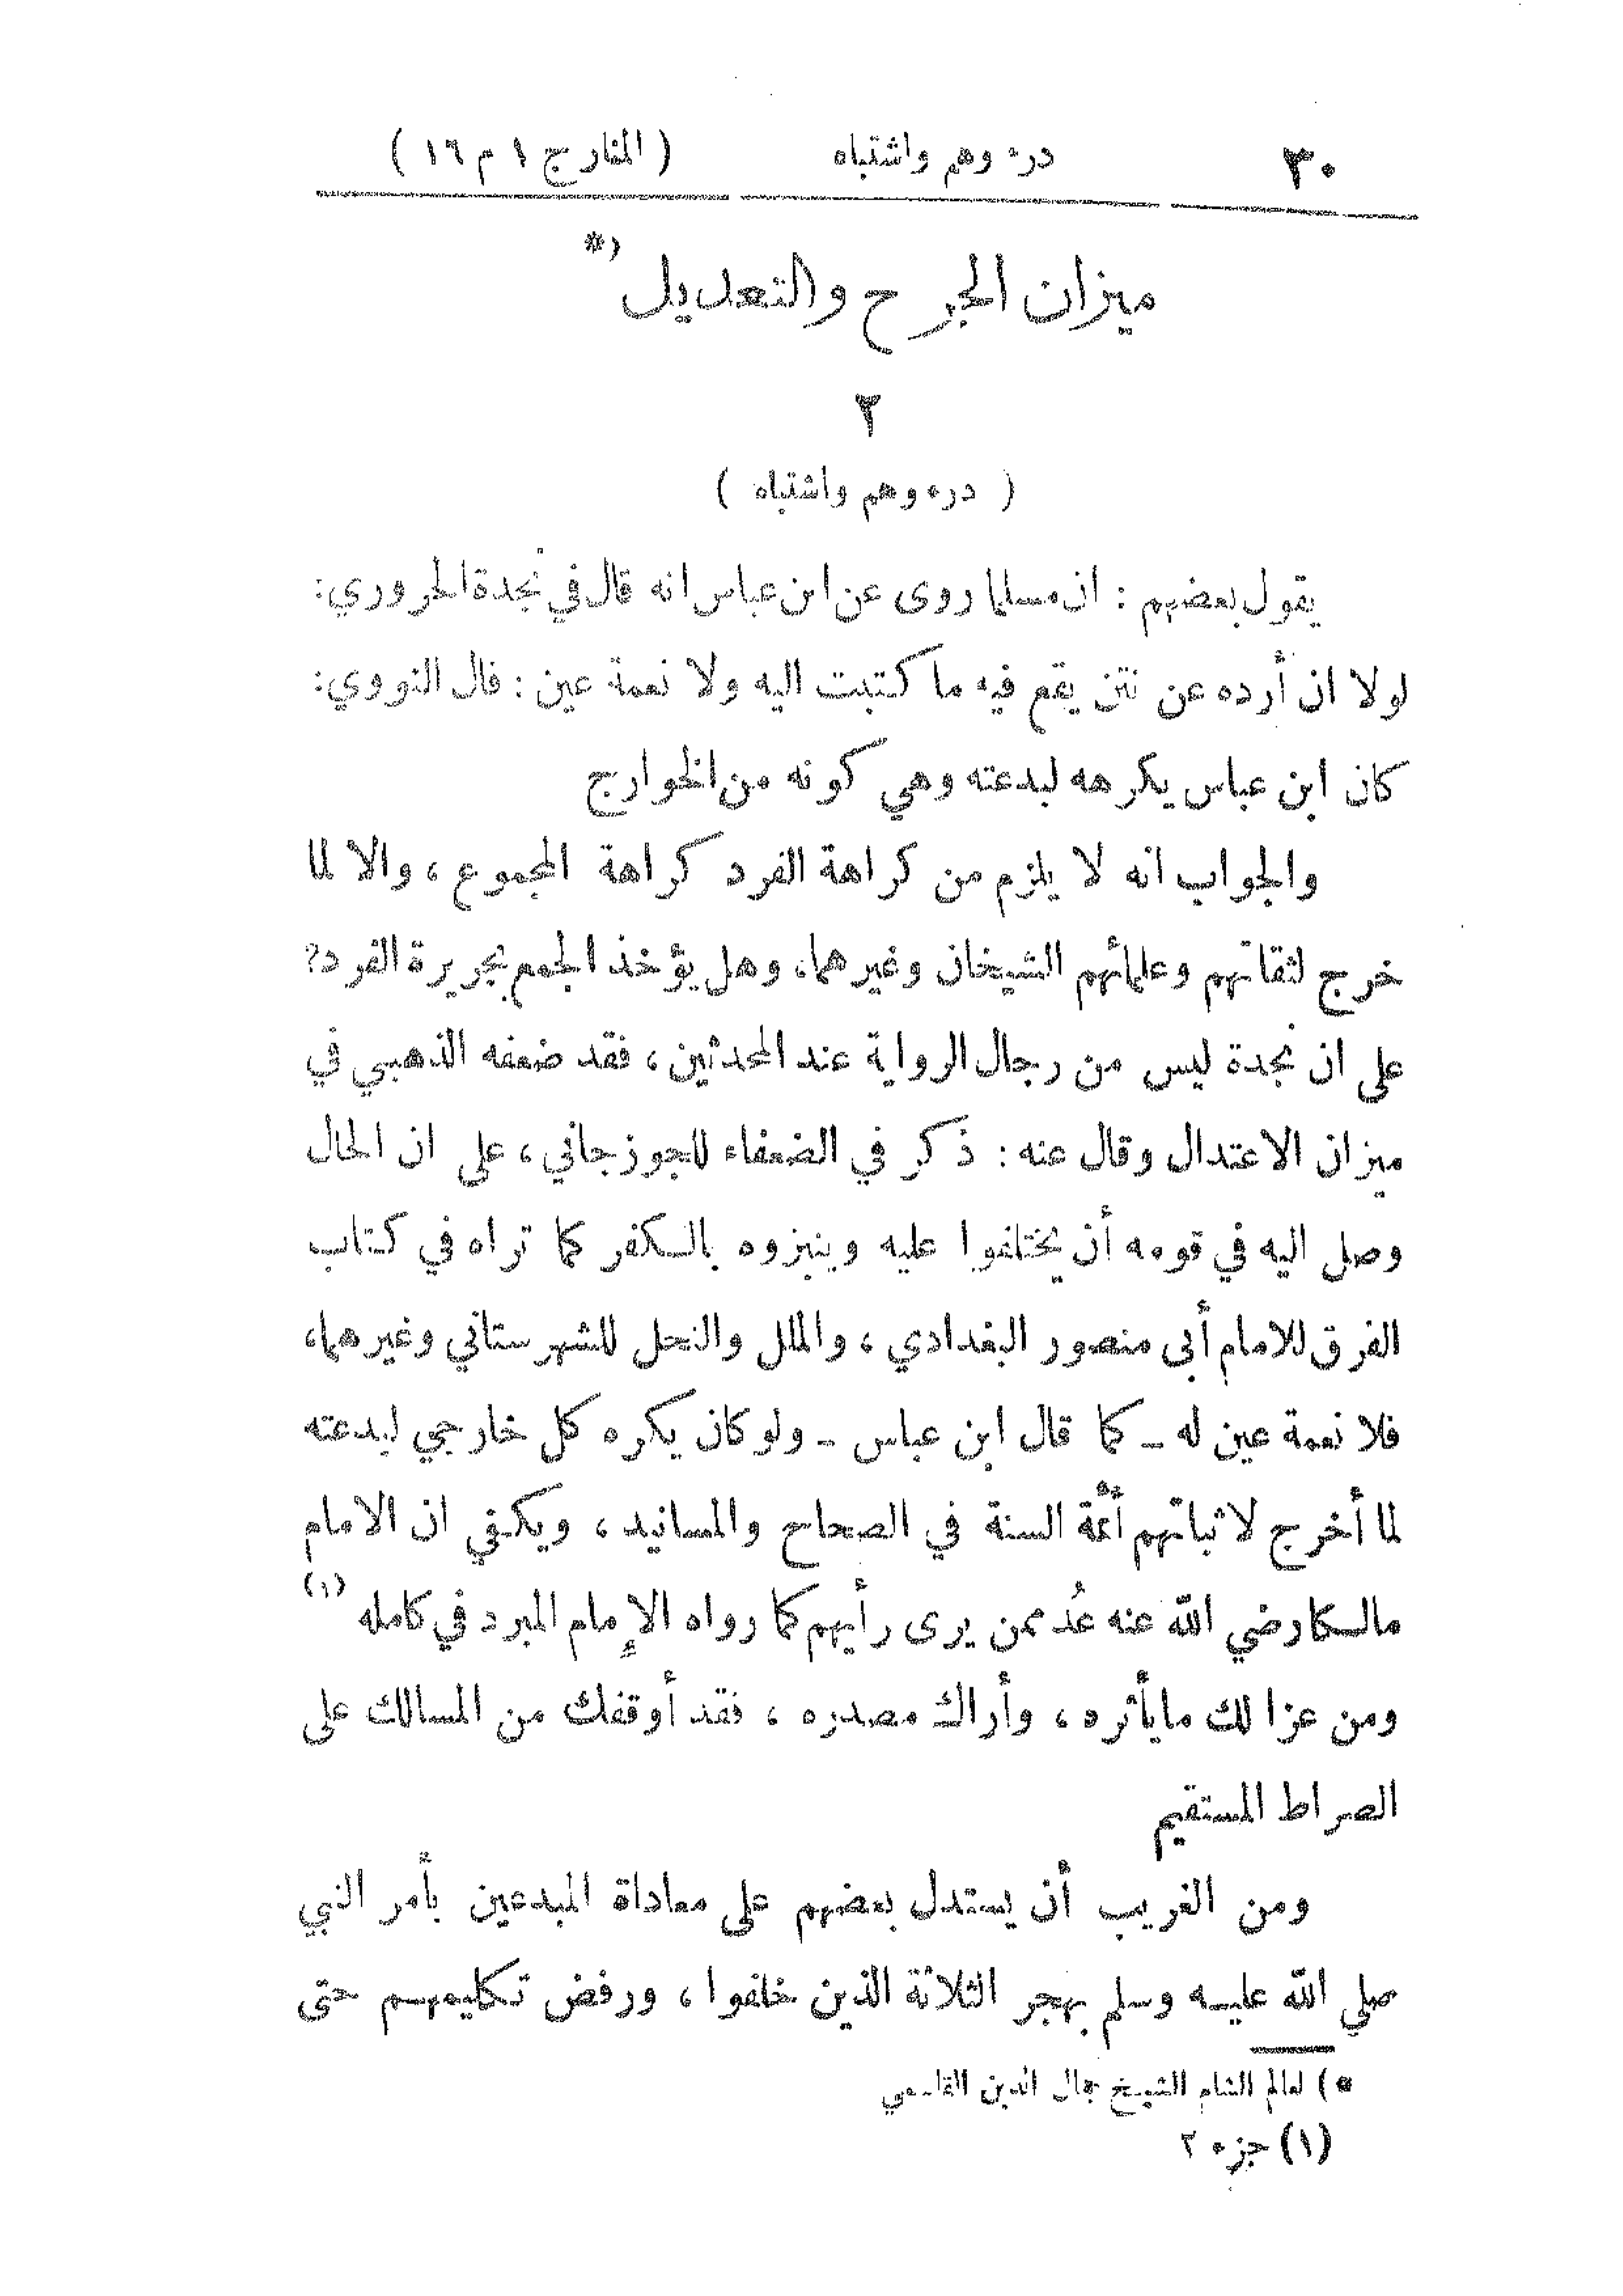 ٣٠ درء وهم واشتباه (المنار ج ١ م ١٦)
ميزان الجرح والتعديل *)
٢
( درء وهم واشتباه )
يقول بعضهم : ان مسلما روى عن ابن عباس انه قال في نجدة الحروري:
لولا ان أرده عن نتن يقع فيه ما كتبت اليه ولا نعمة عين : قال النووي:
كان ابن عباس يكرهه لبدعته وهي كونه من الخوارج
والجواب انه لا يلزم من كراهة الفرد كراهة المجموع ، والا لما
خرج لثقاتهم وعلمائهم الشيخان وغيرهما، وهل يؤخذ الجمع بجريرة الفرد؟
على ان نجدة ليس من رجال الرواية عند المحدثين ، فقد ضعفه الذهبي في
ميزان الاعتدال وقال عنه : ذكر في الضعفاء للجوزجاني ، على ان الحال
وصل اليه في قومه أن يختلفوا عليه وينبزوه بالكفر كما تراه في كتاب
الفرق للامام أبى منصور البغدادي ، والملل والنحل للشهرستاني وغيرهما،
فلا نعمة عين له ـ كما قال ابن عباس ـ ولو كان يكره كل خارجي لبدعته
لما أخرج لاثباتهم أئمة السنة في الصحاح والمسانيد ، ويكفي ان الامام
مالكا رضي الله عنه عُد ممن يرى رأيهم كما رواه الإمام المبرد في كامله (١)
ومن عزا لك ما يأثره ، وأراك مصدره ، فقد أوقفك من المسالك على
الصراط المستقيم
ومن الغريب أن يستدل بعضهم على معاداة المبدعين بأمر النبي
صلى الله عليه وسلم بهجر الثلاثة الذين خلفوا ، ورفض تكليمهم حتى
*) لعالم الشام الشيخ جمال الدين القاسمي
(١) جزء ٢